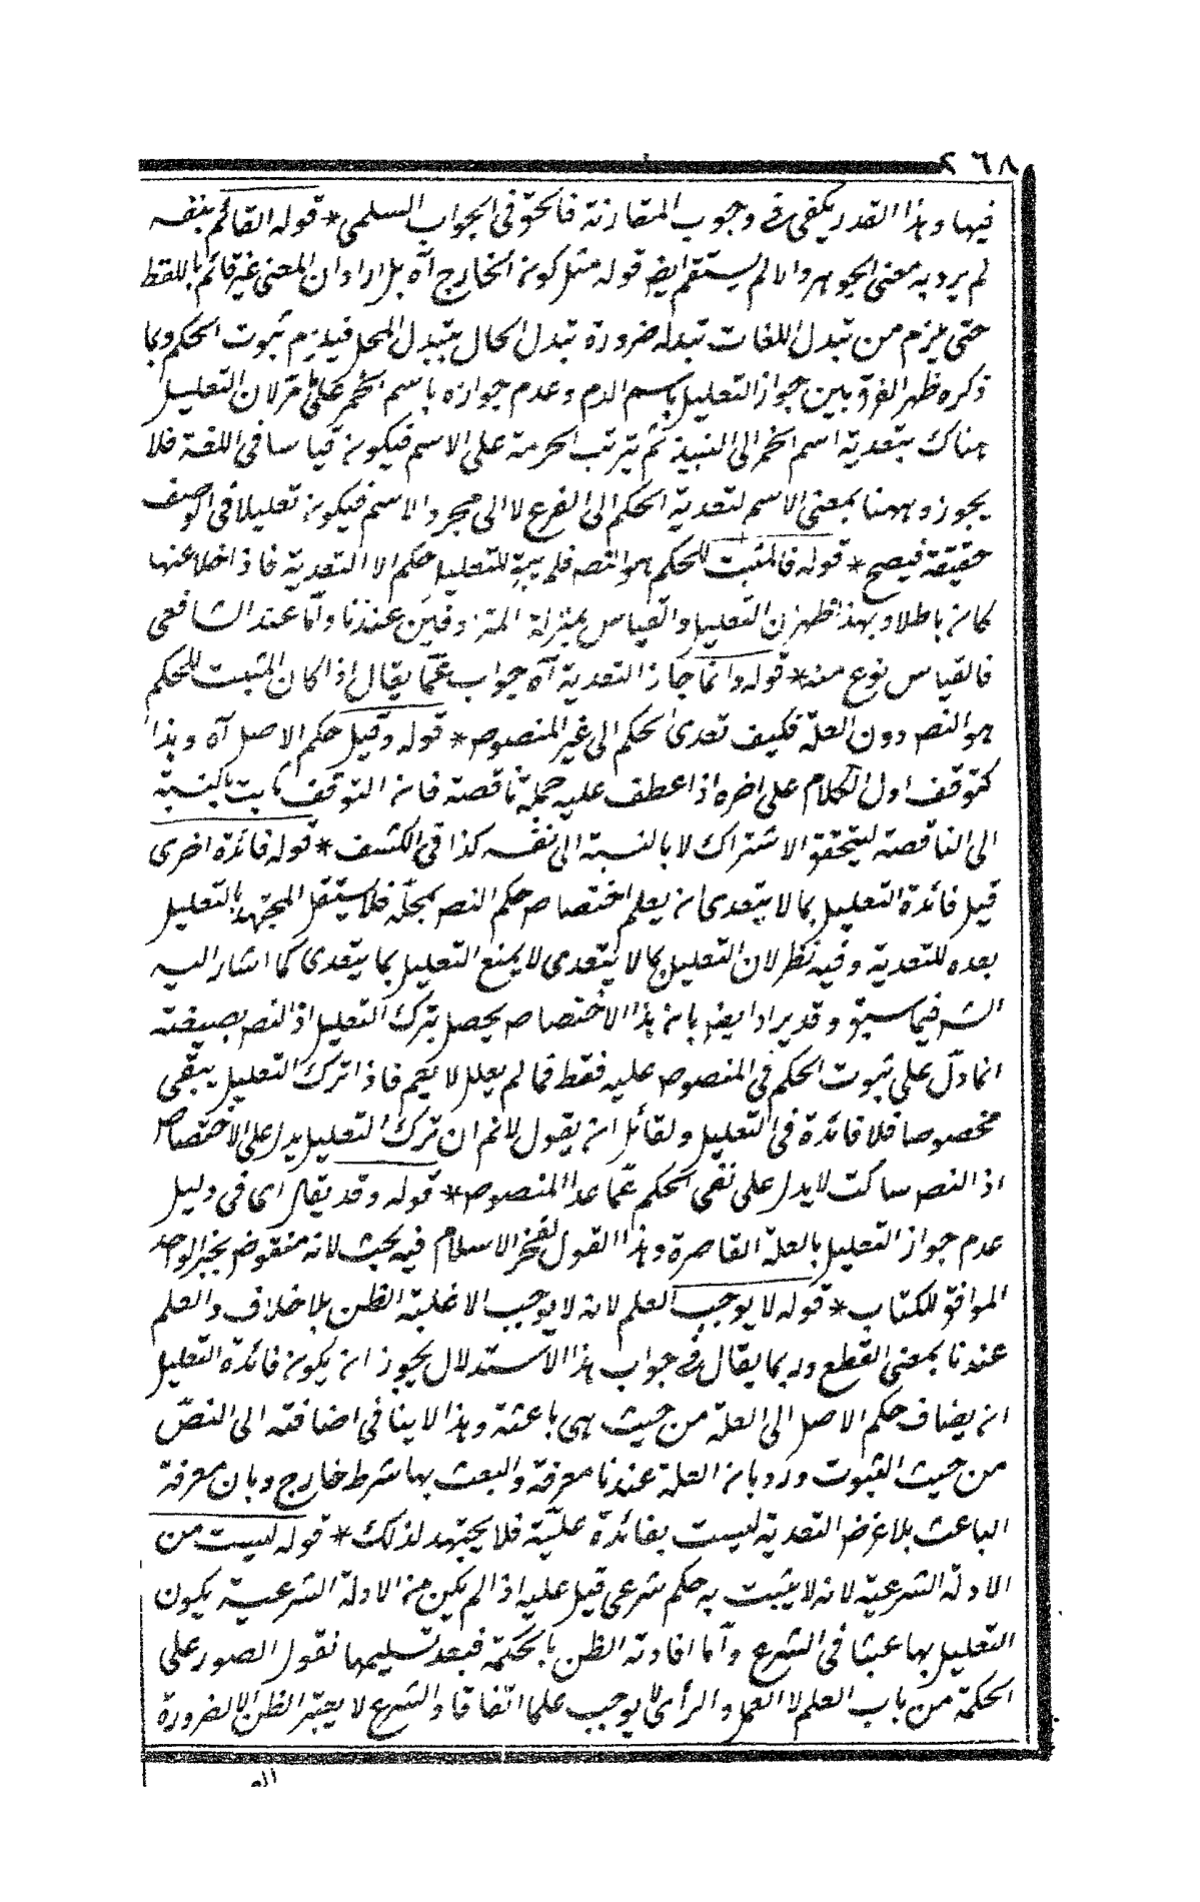 ٢٦٨
فيها وهذا القدر يكفى فى وجوب المقارنة فالحق فى الجواب السلمى * قوله القائم بنفسه
لم يرد به معنى الجوهر والا لم يستقم ايضا قوله مثل كونه الخارج آه بل اراد ان المعنى غير قائم باللفظ
حتى يلزم من تبدل اللغات تبدله ضرورة تبدل الحال بتبدل المحل فيلزم ثبوت الحكم وبما
ذكره ظهر الفرق بين جواز التعليل باسم الدم وعدم جوازه باسم الخمر على ما مر لان التعليل
هناك بتعدية اسم الخمر الى النبيذ ثم يترتب الحرمة على الاسم فيكون قياسا فى اللغة فلا
يجوز وههنا بمعنى الاسم لتعدية الحكم الى الفرع لا الى مجرد الاسم فيكون تعليلا فى الوصف
حقيقة فيصح * قوله فالمثبت للحكم هو النص فلم يبق للتعليل حكم الا التعدية فاذا خلا عنها
كان باطلا وبهذا ظهر ان التعليل والقياس بمنزلة المترادفين عندنا واما عند الشافعى
فالقياس نوع منه * قوله وانما جاز التعدية آه جواب عما يقال اذا كان المثبت للحكم
هو النص دون العلة فكيف تعدى الحكم الى غير المنصوص * قوله وقيل حكم الاصل آه وهذا
كتوقف اول الكلام على اخره اذا عطف عليه جملة ناقصة فان التوقف ثابت بالنسبة
الى الناقصة ليتحقق الاشتراك لا بالنسبة الى نفسه كذا فى الكشف * قوله فائدة اخرى
قيل فائدة التعليل بما لا يتعدى ان يعلم اختصاص حكم النص بمحله فلا يستقل المجتهد بالتعليل
بعده للتعدية وفيه نظر لان التعليل بما لا يتعدى لا يمنع التعليل بما يتعدى كما اشار اليه
الشر فيما سبق وقد يراد ايضا بان هذا الاختصاص يحصل بترك التعليل اذ النص بصيغته
انما دل على ثبوت الحكم فى المنصوص عليه فقط فما لم يعلل لا يعم فاذا ترك التعليل يبقى
مخصوصا فلا فائدة فى التعليل ولقائل ان يقول لا نم ان ترك التعليل يدل على الاختصاص
اذ النص ساكت لا يدل على نفى الحكم عما عدا المنصوص * قوله وقد يقال اى فى دليل
عدم جواز التعليل بالعلة القاصرة وهذا القول لفخر الاسلام فيه بحث لانه منقوض بخبر الواحد
الموافق للكتاب * قوله لا يوجب العلم لانه لا يوجب الا غلبة الظن بلا خلاف والعلم
عندنا بمعنى القطع وربما يقال فى جواب هذا الاستدلال يجوز ان يكون فائدة التعليل
ان يضاف حكم الاصل الى العلة من حيث هى باعثة وهذا لا ينافى اضافته الى النص
من حيث الثبوت ورد بان العلة عندنا معرفة والبعث بها شرط خارج وبان معرفة
الباعث بلا غرض التعدية ليست بفائدة علية فلا يجتهد لذلك * قوله ليست من
الادلة الشرعية لانه لا يثبت به حكم شرعى قيل عليه اذا لم يكن من الادلة الشرعية يكون
التعليل بها عبثا فى الشرع واما افادته الظن بالحكمة فبعد تسليمها نقول الصور على
الحكمة من باب العلم لا العمل والرأى لا يوجب علما اتفاقا والشرع لا يعتبر الظن الا لضرورة